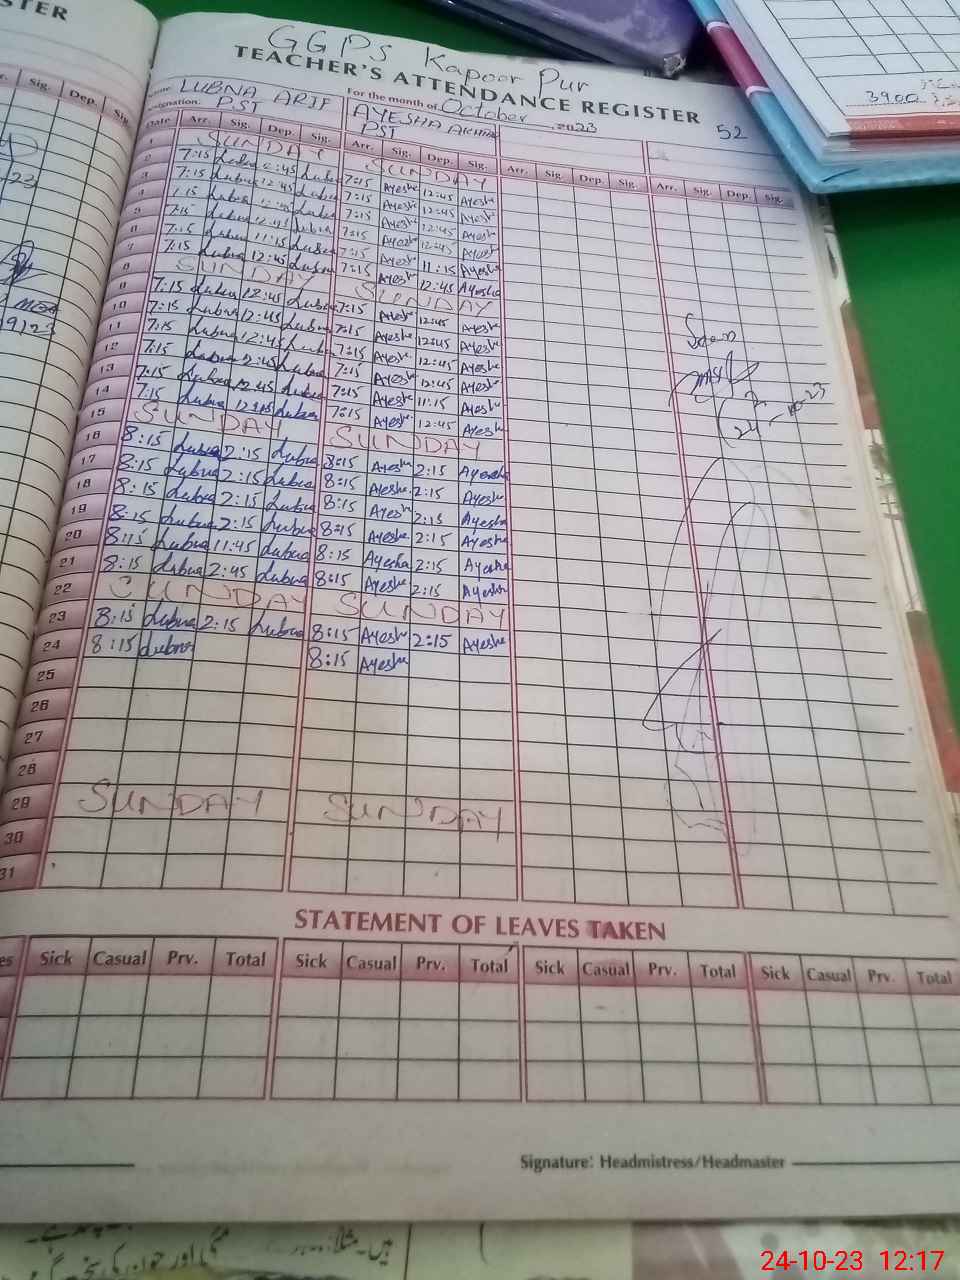 STER
GGPS Kapoor Pur
TEACHER'S ATTENDANCE REGISTER
LUBNA ARIF For the month of October 2023 52
Designation: PST AYESHA
PST
Sig. Dep. Sig.
Date Arr. Sig. Dep. Sig. Arr. Sig. Dep. Sig. Arr. Sig. Dep. Sig. Arr. Sig. Dep. Sig.
1 SUNDAY SUNDAY
2 7:15 Lubna Lubna 7:15 Ayesha 12:45 Ayesha
3 7:15 Lubna 12:45 Lubna 7:15 Ayesha 12:45 Ayesha
4 Lubna Lubna 7:15 Ayesha 12:45 Ayesha
5 7:15 Lubna 12:45 Lubna 7:15 Ayesha 12:45 Ayesha
6 7:15 Lubna 11:15 Lubna 7:15 Ayesha 11:15 Ayesha
7 7:15 Lubna 12:45 Lubna 7:15 Ayesha 12:45 Ayesha
8 SUNDAY SUNDAY
9 7:15 Lubna 12:45 Lubna 7:15 Ayesha 12:45 Ayesha
10 7:15 Lubna 12:45 Lubna 7:15 Ayesha 12:45 Ayesha
11 7:15 Lubna 12:45 Lubna 7:15 Ayesha 12:45 Ayesha
12 7:15 Lubna Lubna 7:15 Ayesha 12:45 Ayesha
13 7:15 Lubna 12:45 Lubna 7:15 Ayesha 11:15 Ayesha
14 7:15 Lubna Lubna 7:15 Ayesha 12:45 Ayesha
15 SUNDAY SUNDAY
16 8:15 Lubna 2:15 Lubna 8:15 Ayesha 2:15 Ayesha
17 8:15 Lubna 2:15 Lubna 8:15 Ayesha 2:15 Ayesha
18 8:15 Lubna 2:15 Lubna 8:15 Ayesha 2:15 Ayesha
19 8:15 Lubna 2:15 Lubna 8:15 Ayesha 2:15 Ayesha
20 8:15 Lubna 11:45 Lubna 8:15 Ayesha 2:15 Ayesha
21 8:15 Lubna 2:45 Lubna 8:15 Ayesha 2:15 Ayesha
22 SUNDAY SUNDAY
23 8:15 Lubna 2:15 Lubna 8:15 Ayesha 2:15 Ayesha
24 8:15 Lubna 8:15 Ayesha
25
26
27
28
29 SUNDAY SUNDAY
30
31
STATEMENT OF LEAVES TAKEN
Sick Casual Prv. Total Sick Casual Prv. Total Sick Casual Prv. Total Sick Casual Prv. Total
Signature: Headmistress/Headmaster
3900
24-10-23 12:17